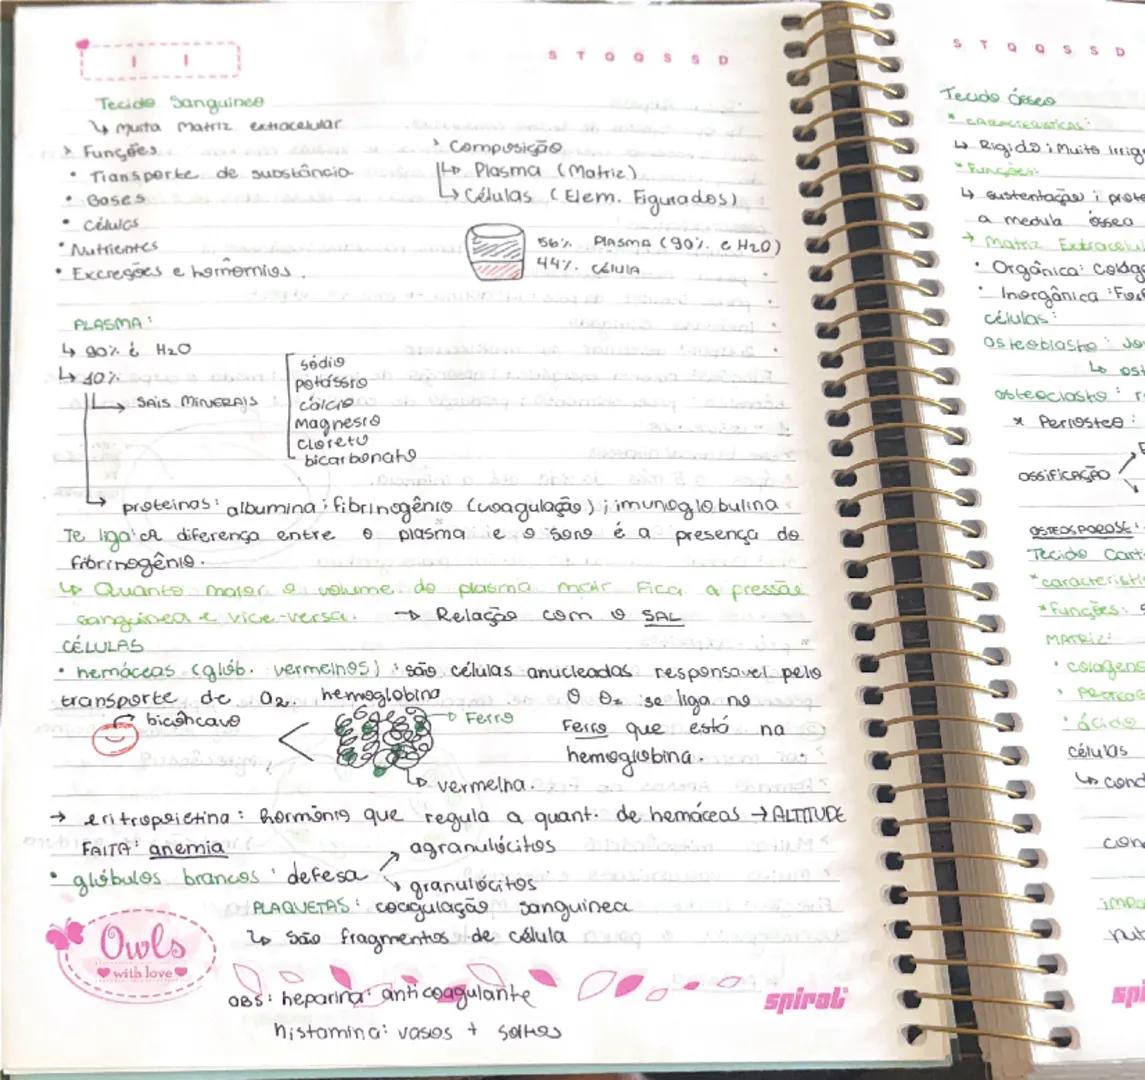 S T Q Q S S D
Tecido Sanguíneo
↳ muita matriz extracelular
> Funções
• Transporte de substância
• Gases
• Células
• Nutrientes
• Excreções e hormômios.
> Composição
↳ Plasma (Matriz)
↳ Células (Elem. Figurados)
56% PlASMA (90% é H2O)
44% CÉlULA
PLASMA:
↳ 90% é H2O
↳ 10%
↳ SAIS MINERAIS
sódio
potássio
cálcio
Magnesio
cloreto
bicarbonato
↳ proteínas: albumina; fibrinogênio (coagulação); imunoglobulina
Te liga! a diferença entre o plasma e o soro é a presença do
fibrinogênio.
↳ Quanto maior o volume do plasma maior fica a pressão
sanguínea e vice-versa. → Relação com o SAL
CÉLULAS
• hemáceas (glób. vermelhos): são células anucleadas responsavel pelo
transporte de O2. hemoglobina
bicôncavo
Ferro
vermelha.
O O2 se liga no
Ferro que está na
hemoglobina.
→ eritropoietina: hormônio que regula a quant. de hemáceas → ALTITUDE
FAlTA: anemia
• glóbulos brancos: defesa
agranulócitos
granulócitos
PLAQUETAS: coagulação sanguínea
↳ São fragmentos de célula
OBS: heparina: anticoagulante
histamina: vasos +
Owls
with love
spiral
S T Q Q S S D
Tecido ósseo
* CARACTERÍSTICAS:
↳ Rígido; Muito irrig
* Funções:
↳ sustentação; prote
a medula óssea
→ Matriz Extracelul
• Orgânica: Colág
• Inorgânica:
células:
Osteoblasto:
↳ ost
osteoclasto: r
* Periósteo:
OSSIFICAÇÃO
OSTEOSPOROSE:
Tecido Carti
* característi
* Funções:
MATRIZ:
• colágeno
• ácido
células
↳ cond
con
impo
nut
spi